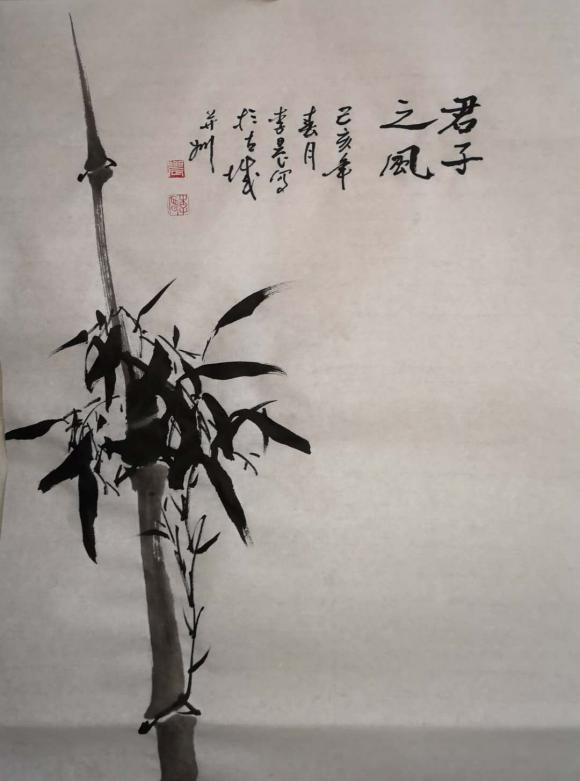 君子
之風
己亥年
春月
李晨写
於古城
并州